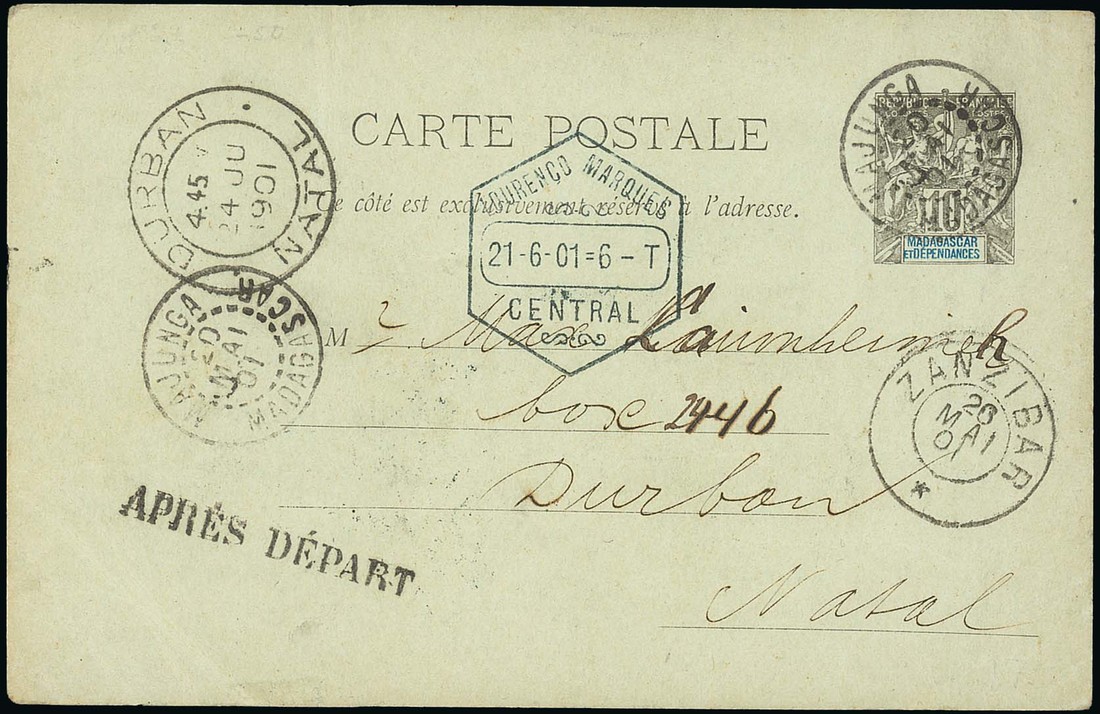 CARTE POSTALE
Ce côté est exclusivement réservé à l'adresse.
RÉPUBLIQUE FRANÇAISE
10
MADAGASCAR
ET DÉPENDANCES
MAJUNGA
MADAGASCAR
DURBAN · NATAL
4.45
24 JU
1901
LOURENÇO MARQUES
21-6-01=6-T
CENTRAL
MAJUNGA
20
MAI
01
MADAGASCAR
ZANZIBAR
26
MAI
01
*
M r Max
box 2446
Durban
Natal
APRÉS DÉPART